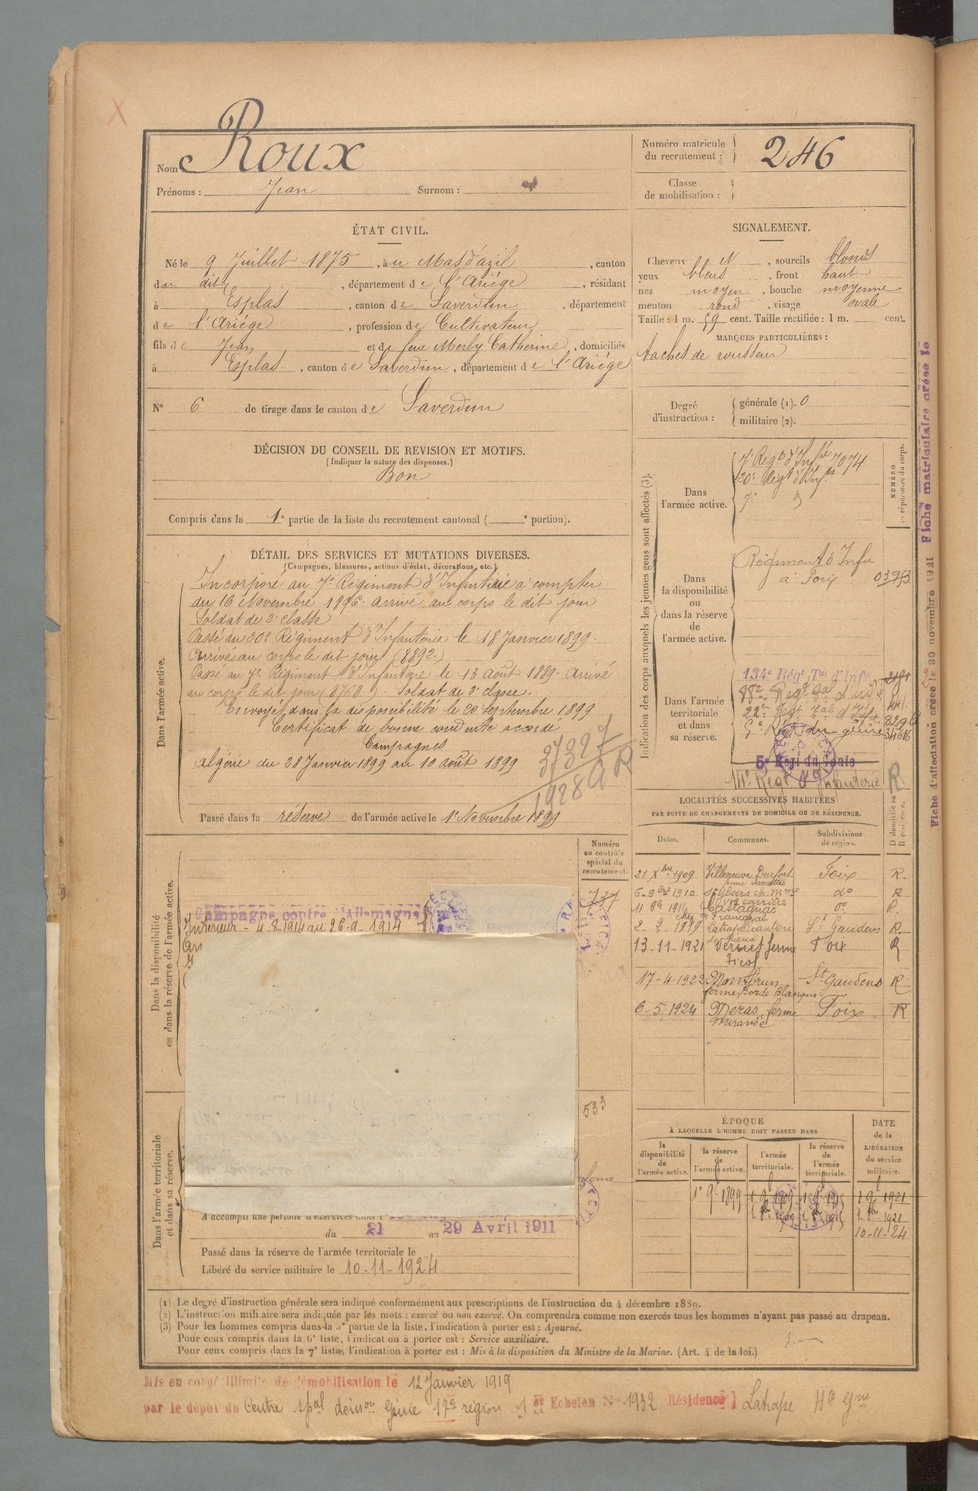 Nom Roux
Prénoms : Jean Surnom :
Numéro matricule du recrutement : 246
Classe de mobilisation :
ÉTAT CIVIL.
Né le 9 Juillet 1875, à u Mas d'azil, canton
du dit, département de l'Ariége, résidant
à Esplas, canton de Saverdun, département
de l'Ariége, profession de Cultivateur
fils de Jean et de feue Merly Catherine, domiciliés
à Esplas, canton de Saverdun, département de l'Ariége
N° 6 de tirage dans le canton de Saverdun
SIGNALEMENT.
Cheveux et, sourcils blonds
yeux bleus, front haut
nez moyen, bouche moyenne
menton rond, visage ovale
Taille : 1 m. 59 cent. Taille rectifiée : 1 m. cent.
MARQUES PARTICULIÈRES :
taches de rousseur
Degré d'instruction : générale (1). 0
militaire (2).
DÉCISION DU CONSEIL DE REVISION ET MOTIFS.
(Indiquer la nature des dispenses.)
Bon
Compris dans la 1e partie de la liste du recrutement cantonal ( portion).
DÉTAIL DES SERVICES ET MUTATIONS DIVERSES.
(Campagnes, blessures, actions d'éclat, décorations, etc.)
Dans l'armée active.
Incorporé au 7e Régiment d'Infanterie à compter
du 16 Novembre 1896. Arrivé au corps le dit jour
Soldat de 2e classe
Passé au 20e Régiment d'Infanterie le 18 Janvier 1899.
Arrivé au corps le dit jour (8892.)
Passé au 7e Régiment d'Infanterie le 13 août 1899. Arrivé
au corps le dit jour. Soldat de 2e classe.
Envoyé dans la disponibilité le 20 septembre 1899
Certificat de bonne conduite accordé
Campagnes
Algérie du 28 Janvier 1899 au 10 août 1899
37327
1928 R
Passé dans la réserve de l'armée active le 1er Novembre 1899
Indication des corps auxquels les jeunes gens sont affectés (3).
NUMÉRO au répertoire du corps.
Dans l'armée active.
7e Regt d'Infie 7074
20e Régt d'Inf.
7e
Dans la disponibilité ou dans la réserve de l'armée active.
Régiment d'Infie
à Foix
Dans l'armée territoriale et dans sa réserve.
134e Régt Tal d'Infie
5e Regt du génie
14e Regt d'Infanterie
LOCALITÉS SUCCESSIVES HABITÉES
PAR SUITE DE CHANGEMENTS DE DOMICILE OU DE RÉSIDENCE.
Dates. Communes. Subdivisions de région.
21 Xbre 1909 Villeneuve Durfort Foix R.
6-9bre 1910 do R
11 9bre 1911 Castagnac do R.
2-2-1919 St Gaudens R
13-11-1921 ferme Foix R
17-4-1923 Montbrun ferme Borde Blanque St Gaudens R
6-5-1924 Meras ferme Mirande Foix R
Numéro au contrôle spécial du recrutement.
727
Dans la disponibilité ou dans la réserve de l'armée active.
Campagne contre l'Allemagne
Intérieur - 4-8-1914 au 26-9-1914
533
Dans l'armée territoriale et dans sa réserve.
A accompli une période d'exercices
du 21 au 29 Avril 1911
Passé dans la réserve de l'armée territoriale le
Libéré du service militaire le 10-11-1924
ÉPOQUE
À LAQUELLE L'HOMME DOIT PASSER DANS
la disponibilité de l'armée active. la réserve de l'armée active. l'armée territoriale. la réserve de l'armée territoriale.
DATE de la LIBÉRATION du service militaire.
1er 9bre 1899
1921
1921
10-11-24
(1) Le degré d'instruction générale sera indiqué conformément aux prescriptions de l'instruction du 4 décembre 1889.
(2) L'instruction militaire sera indiquée par les mots : exercé ou non exercé. On comprendra comme non exercés tous les hommes n'ayant pas passé au drapeau.
(3) Pour les hommes compris dans la 5e partie de la liste, l'indication à porter est : Ajourné.
Pour ceux compris dans la 6e liste, l'indication à porter est : Service auxiliaire.
Pour ceux compris dans la 7e liste, l'indication à porter est : Mis à la disposition du Ministre de la Marine. (Art. 4 de la loi.)
Mis en congé illimité de démobilisation le 12 Janvier 1919
par le dépôt du Centre spal démon Génie 17e région 1er Echelon No 1932 Résidence) Latrape Hte Gne
Fiche d'affectation créée le 30 novembre 1921 Fiche matriculaire créée le